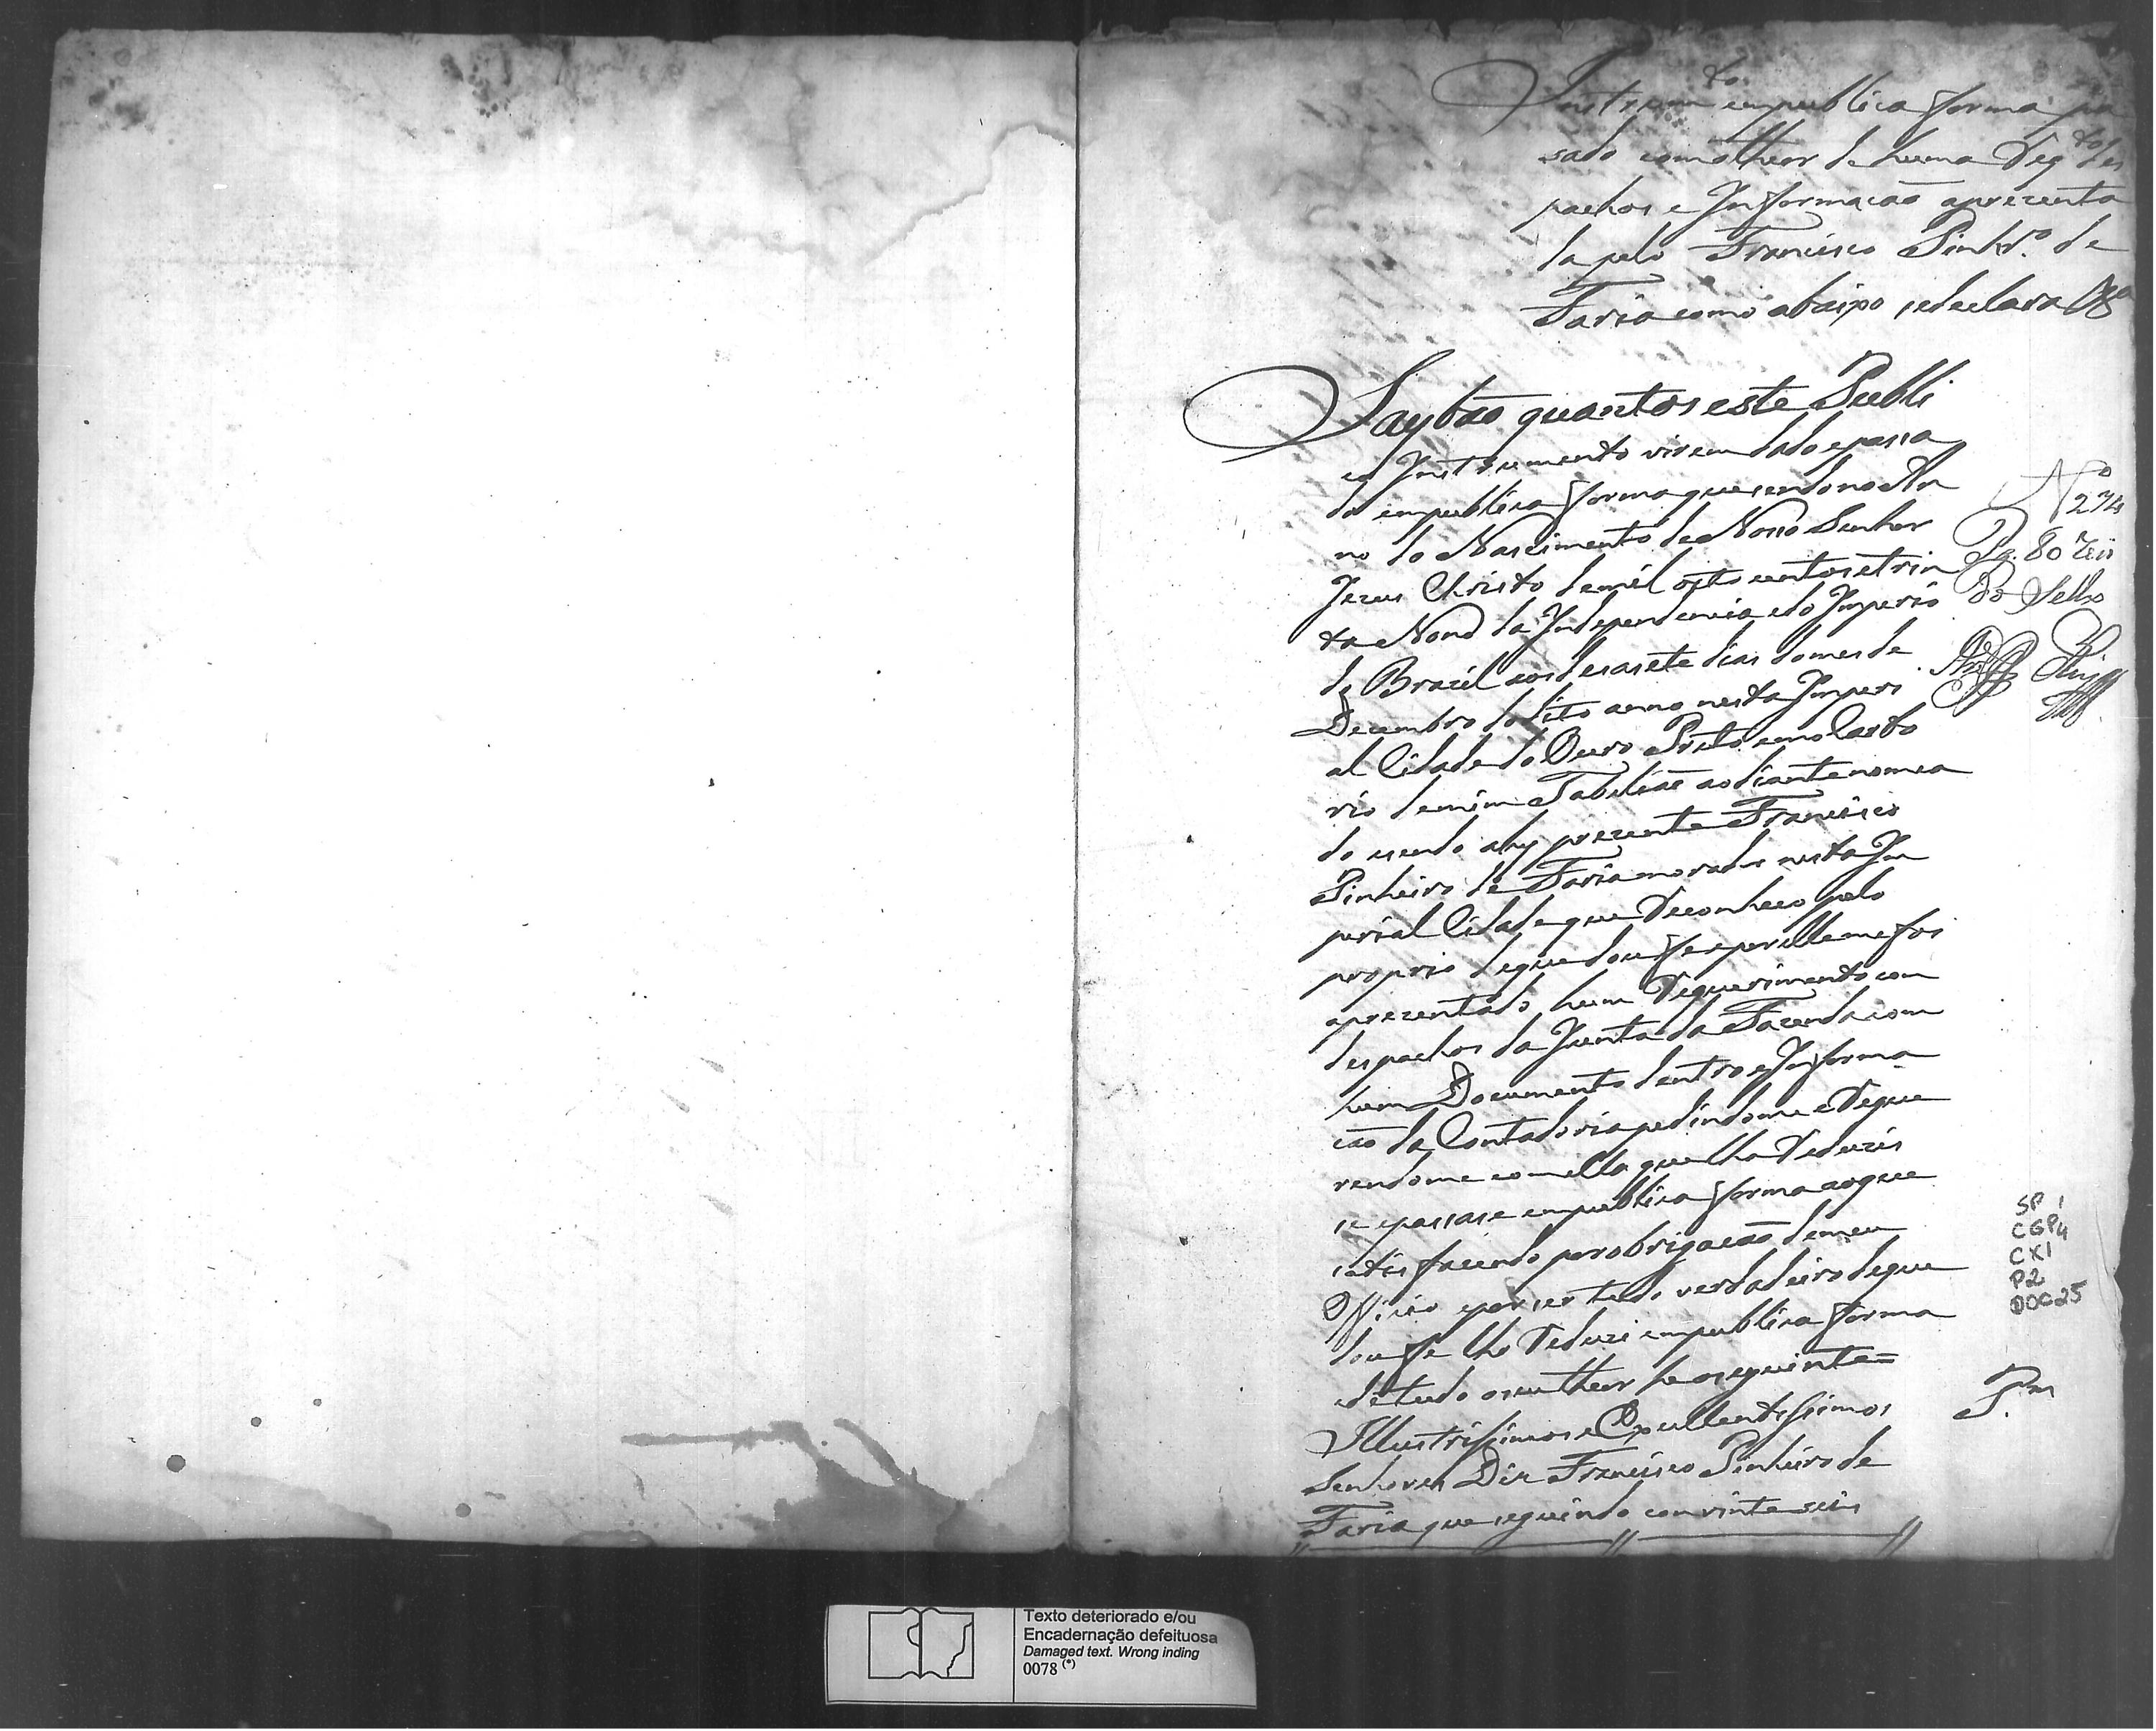 Instrum.to em publica forma pa
sado com o theor de huma Req.to des
pachos e Informacaõ aprezenta
da pelo Francisco Pinhr.o de
Faria como abaixo se declara
Saybão quantos este Publi
co Instrumento virem dado e passa
do em publica forma que sendo no An
no do Nascimento de Nosso Senhor
Jezus Christo de mil oito centos e trin
ta Nono da Independencia e do Imperio
do Brazil aos desasete dias do mes de
Dezembro do dito anno nesta Imperi
al Cidade do Ouro Preto em o Carto
rio de mim Tabeliaõ ao diante nomea
do e sendo ahy prezente Francisco
Pinheiro de Faria morador nesta Im
perial Cidade que Reconheco pelo
proprio de que dou fe e por elle me foi
aprezentado hum Requerimento com
despachos da Junta da Fazenda com
hum Documento dentro e Informa
cão da Contadoria pedindome e Reque
rendome com ella que lho Reduzis
se e passase em publica forma ao que
satisfazendo por obrigacaõ de meu
Officio e por ser tudo verdadeiro de que
dou fe lho Reduzi em publica forma
e de tudo o seu theor he o seguinte =
Illustrissimos e Excellentissimos
Senhores Diz Francisco Pinheiro de
Faria que seguindo com vinte seis
No
274
Pg. 80 reis
Do Sello
SP 1
CGP4
CX1
P2
DOC25
P.m
Texto deteriorado e/ou
Encadernação defeituosa
Damaged text. Wrong inding
0078 (*)